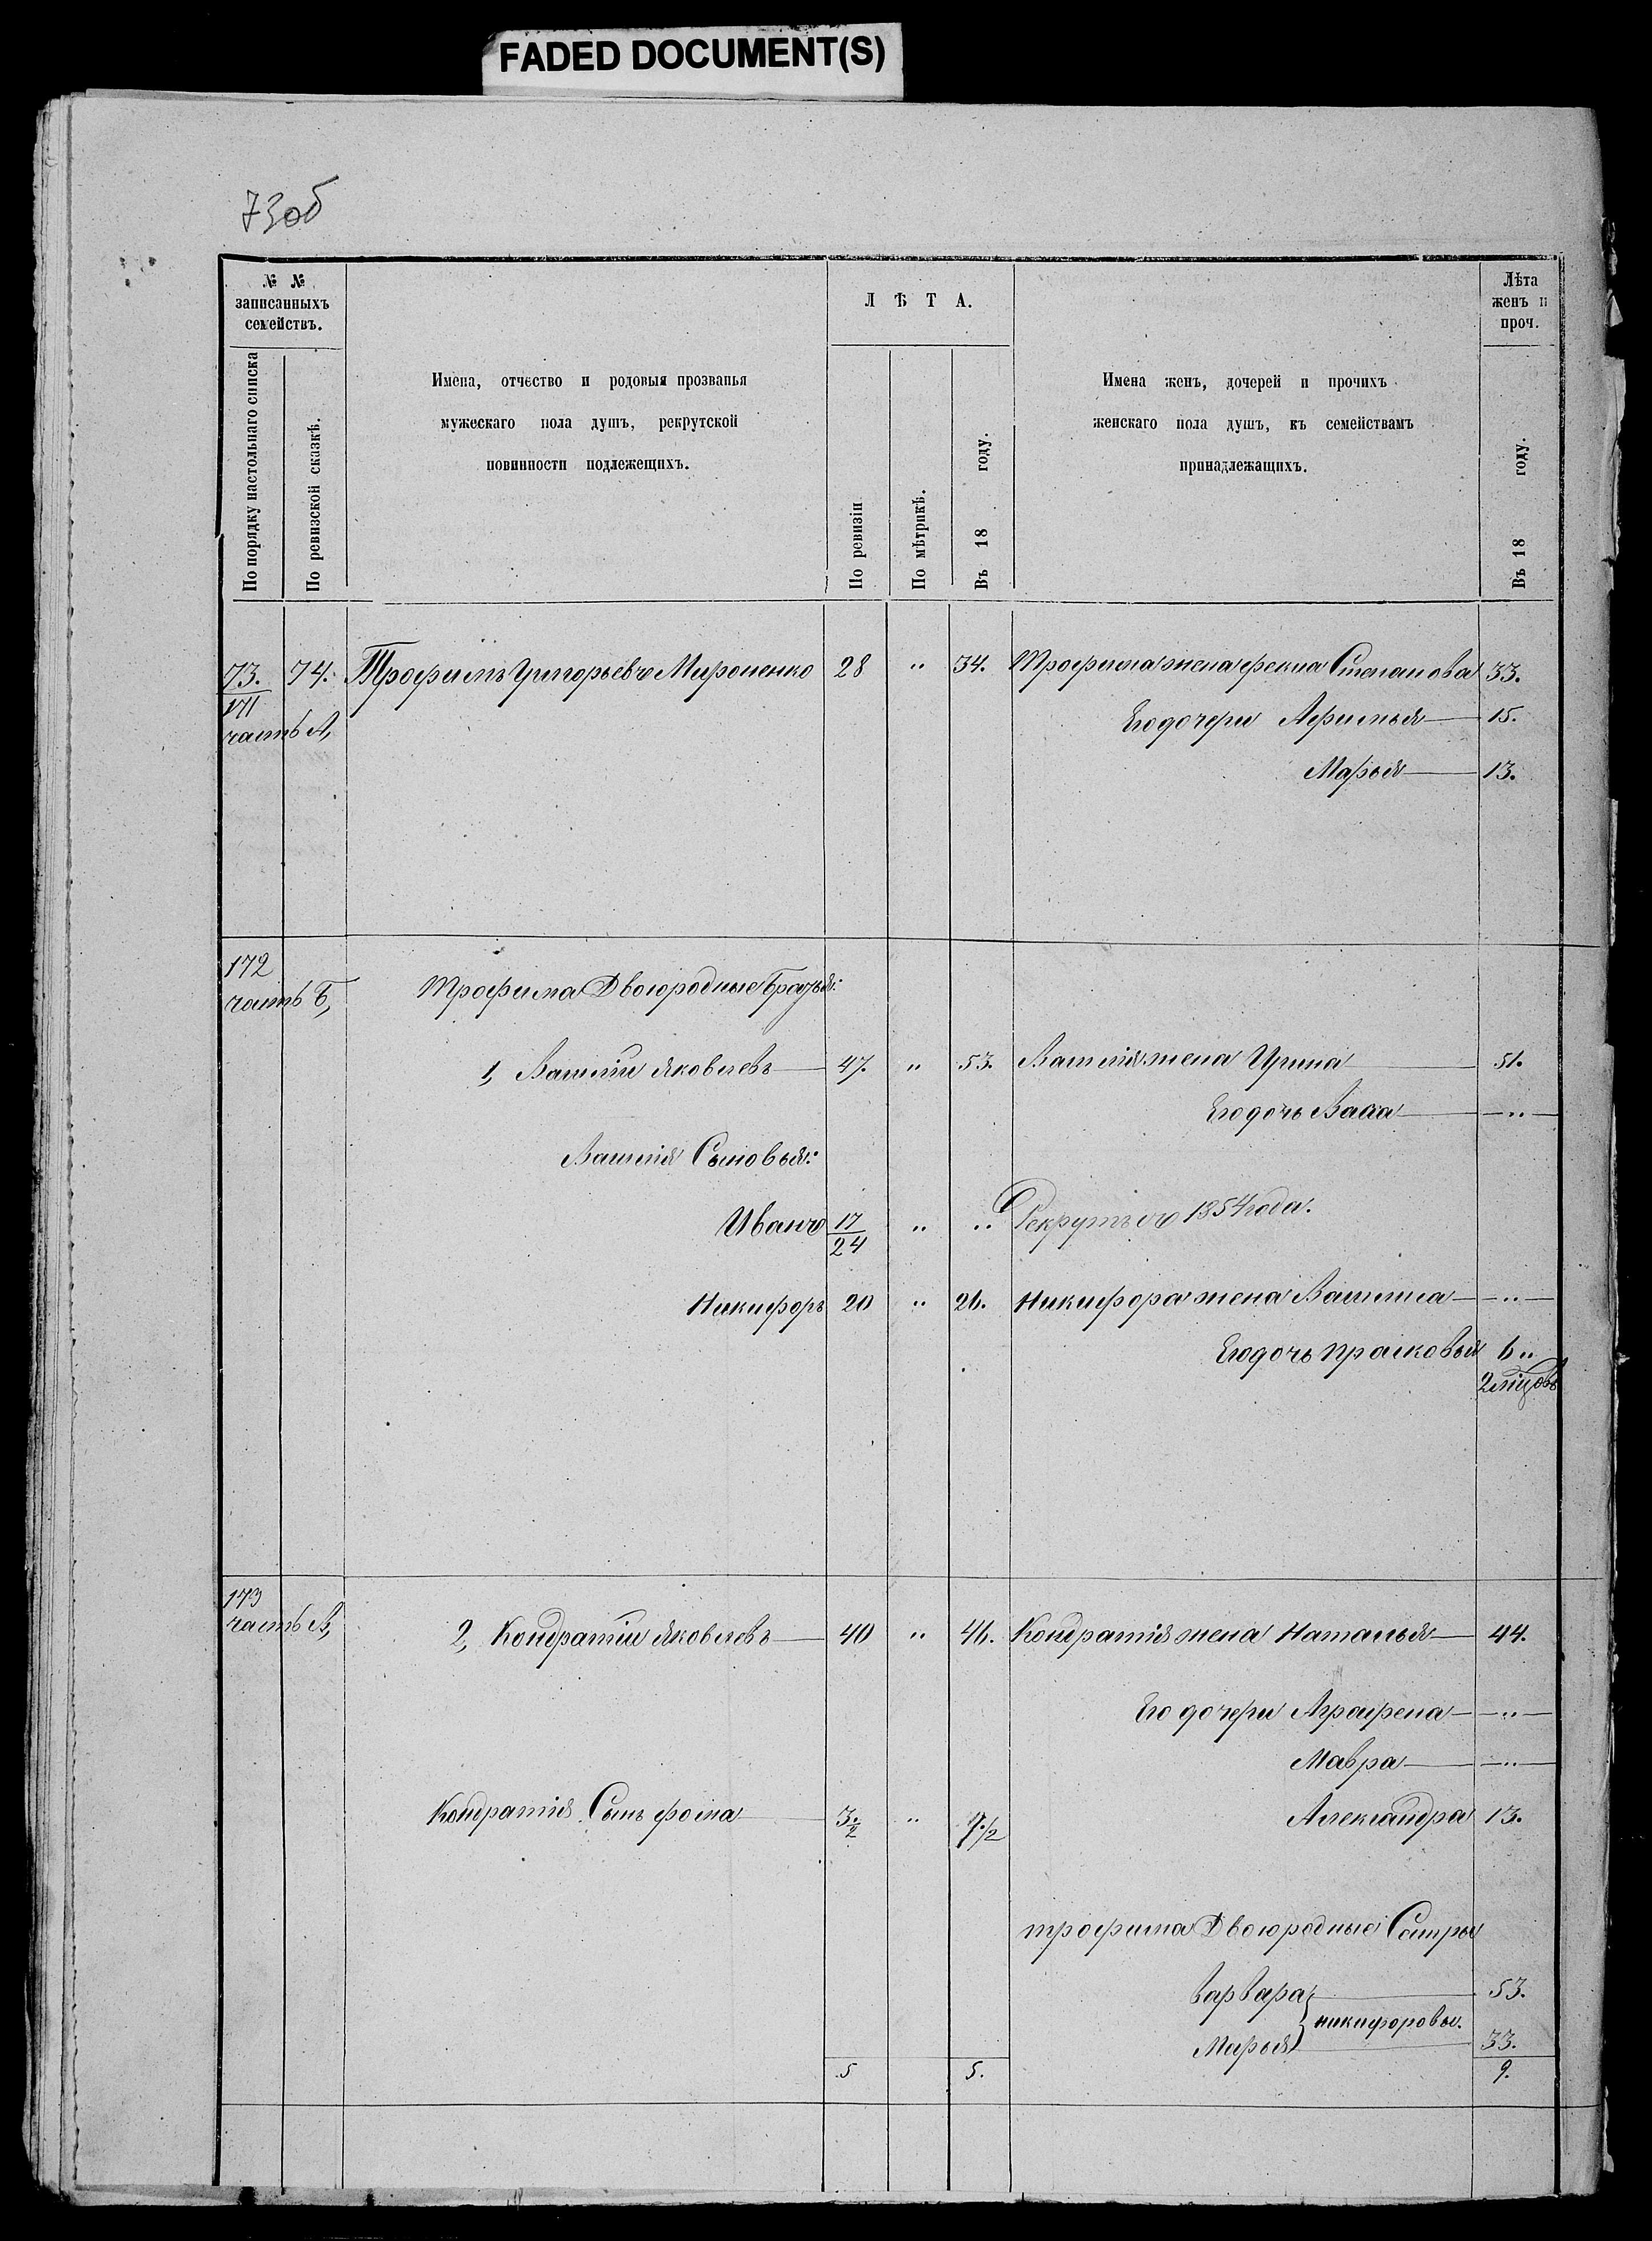 FADED DOCUMENT(S)
73об
№ №
записанныхъ
семействъ.
По порядку настольнаго списка
По ревизской сказкѣ.
Имена, отчество и родовыя прозванья
мужескаго пола душъ, рекрутской
повинности подлежещихъ.
ЛѢТА.
По ревизіи
По мѣтрикѣ.
Въ 18 году.
Имена женъ, дочерей и прочихъ
женскаго пола душъ, къ семействамъ
принадлежащихъ.
Лѣта
женъ и
проч.
Въ 18 году.
73. 74. Трофимъ Григорьевъ Мироненко 28 " 34. Трофима жена Фекла Степанова 33.
171
часть А, Его дочери Афимья 15.
Марья 13.
172
часть Б, Трофима Двоюродные Братья:
1, Василій Яковлевъ 47. " 53. Василія жена Ирина 51.
Его дочь Васса "
Василія Сыновья:
Иванъ 17/24 " " Рекрутъ 1854 года.
Никифоръ 20 " 26. Никифора жена Василиса "
Его дочь Прасковья 6 "
2 мѣцовъ
173
часть В, 2, Кондратій Яковлевъ 40 " 46. Кондратія жена Наталья 44.
Его дочери Аграфена "
Мавра "
Кондратія Сынъ Фома 3 1/2 " 9 1/2 Александра 13.
Трофима Двоюродные Сестры
Варвара 53.
Никифоровы.
Марья 33.
5 5. 9.